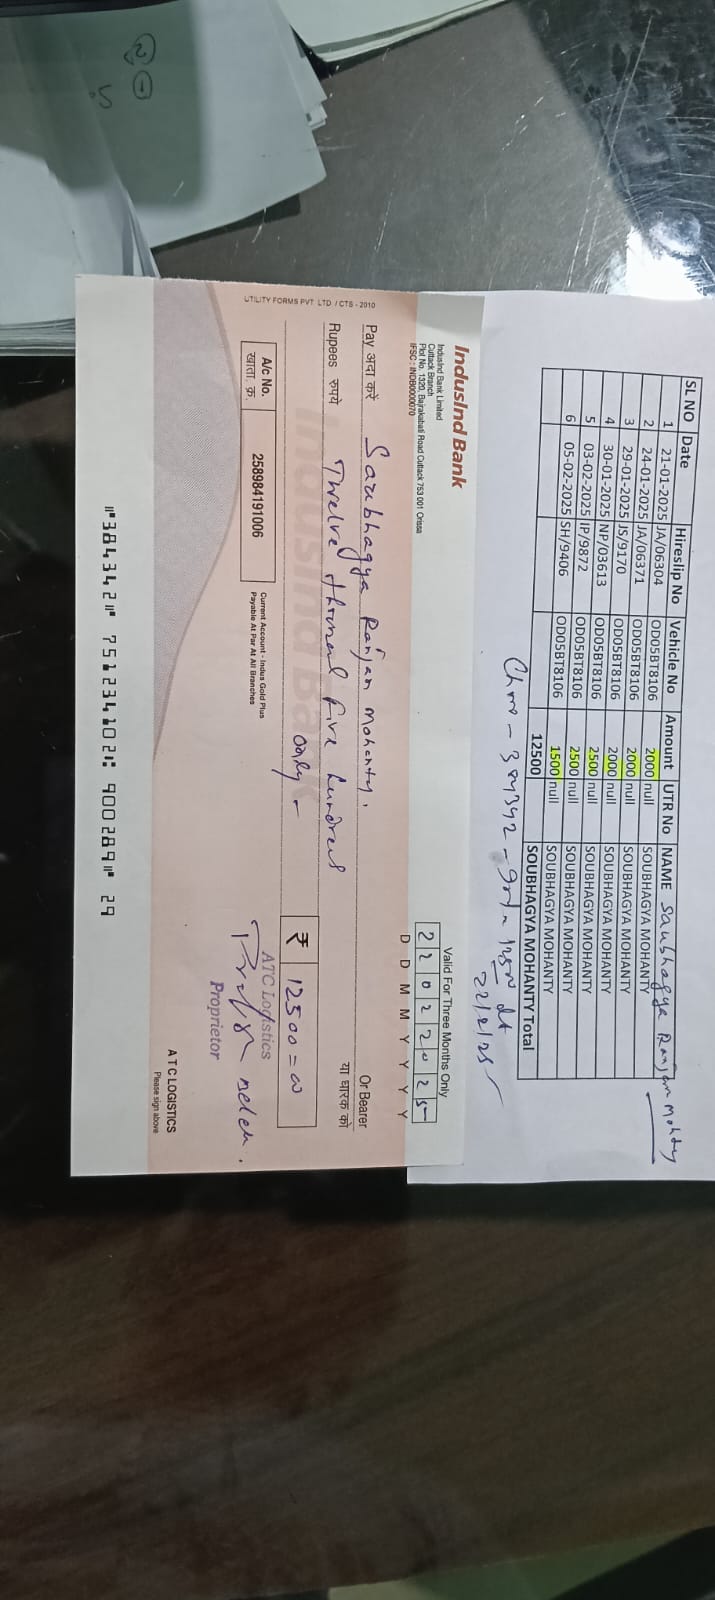 SL NO Date Hireslip No Vehicle No Amount UTR No NAME Saubhagya Ranjan Mohanty
1 21-01-2025 JA/06304 OD05BT8106 2000 null SOUBHAGYA MOHANTY
2 24-01-2025 JA/06371 OD05BT8106 2000 null SOUBHAGYA MOHANTY
3 29-01-2025 JS/9170 OD05BT8106 2000 null SOUBHAGYA MOHANTY
4 30-01-2025 NP/03613 OD05BT8106 2500 null SOUBHAGYA MOHANTY
5 03-02-2025 IP/9872 OD05BT8106 2500 null SOUBHAGYA MOHANTY
6 05-02-2025 SH/9406 OD05BT8106 1500 null SOUBHAGYA MOHANTY
12500 SOUBHAGYA MOHANTY Total
384342 dt
22/2/25
IndusInd Bank
IndusInd Bank Limited
Cuttack Branch
Plot No. 1320, Bajrakabati Road Cuttack 753 001 Orissa
IFSC : INDB0000070
Valid For Three Months Only
22022025
D D M M Y Y Y Y
Pay अदा करें Saubhagya Ranjan Mohanty. Or Bearer
या धारक को
Rupees रुपये Twelve thousand five hundred
only ₹ 12500=00
A/c No.
खाता. क्र. 258984191006
Current Account - Indus Gold Plus
Payable At Par At All Branches
ATC Logistics
Proprietor
A T C LOGISTICS
Please sign above
UTILITY FORMS PVT. LTD. / CTS - 2010
⑈384342⑈ 751234102⑆ 900289⑈ 29
2 1